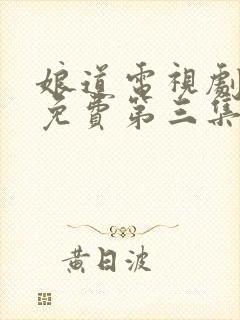 娘道電視劇
免費第三集
黃日波